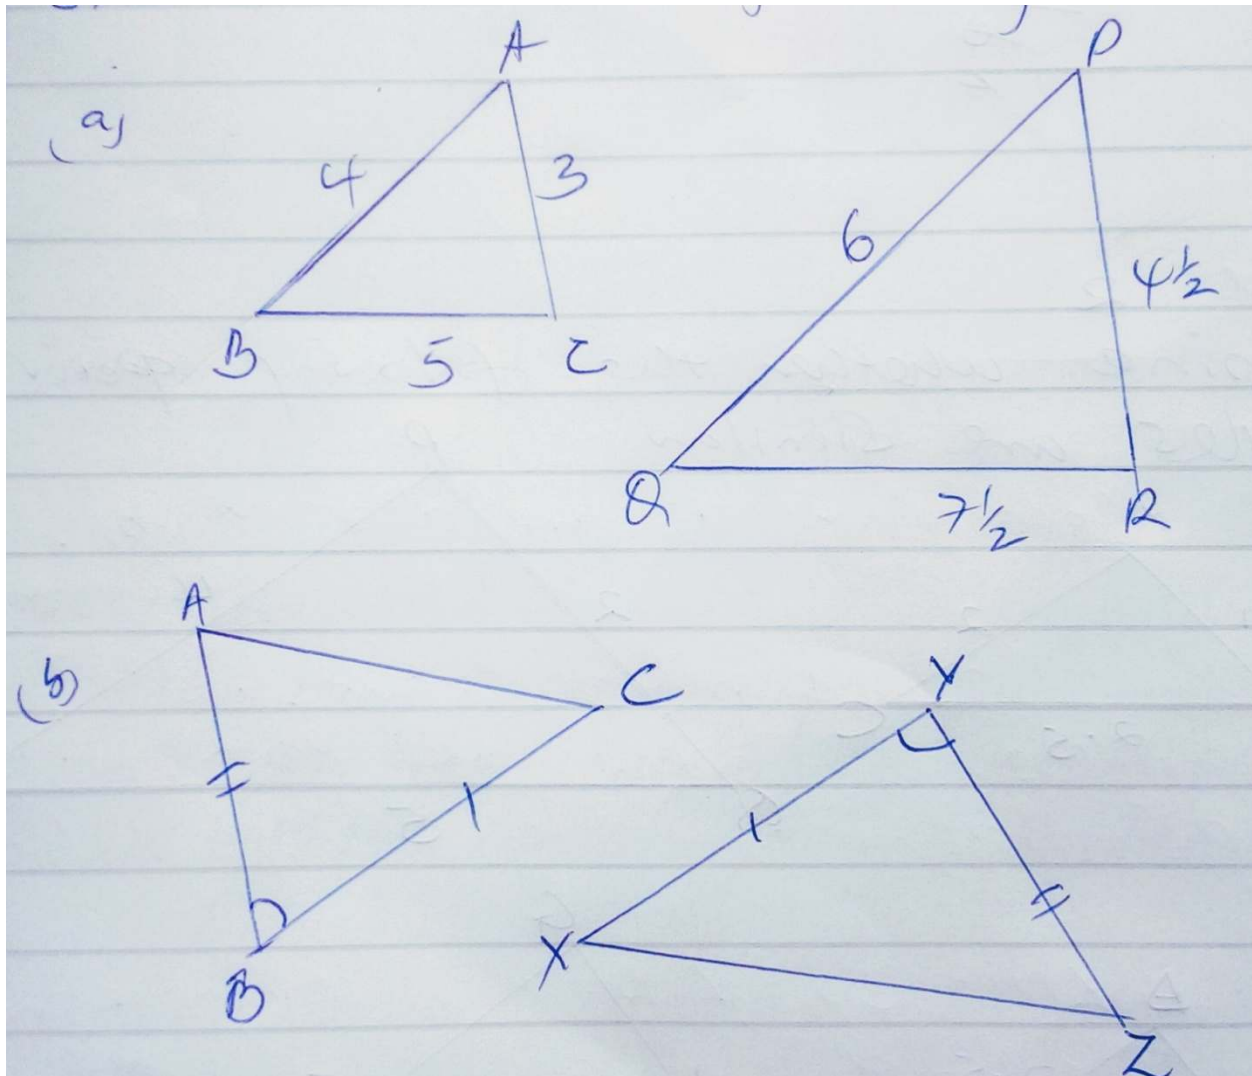 (a)
A
4
3
B
5
C
P
6
4 1/2
Q
7 1/2
R
(b)
A
C
B
Y
X
Z